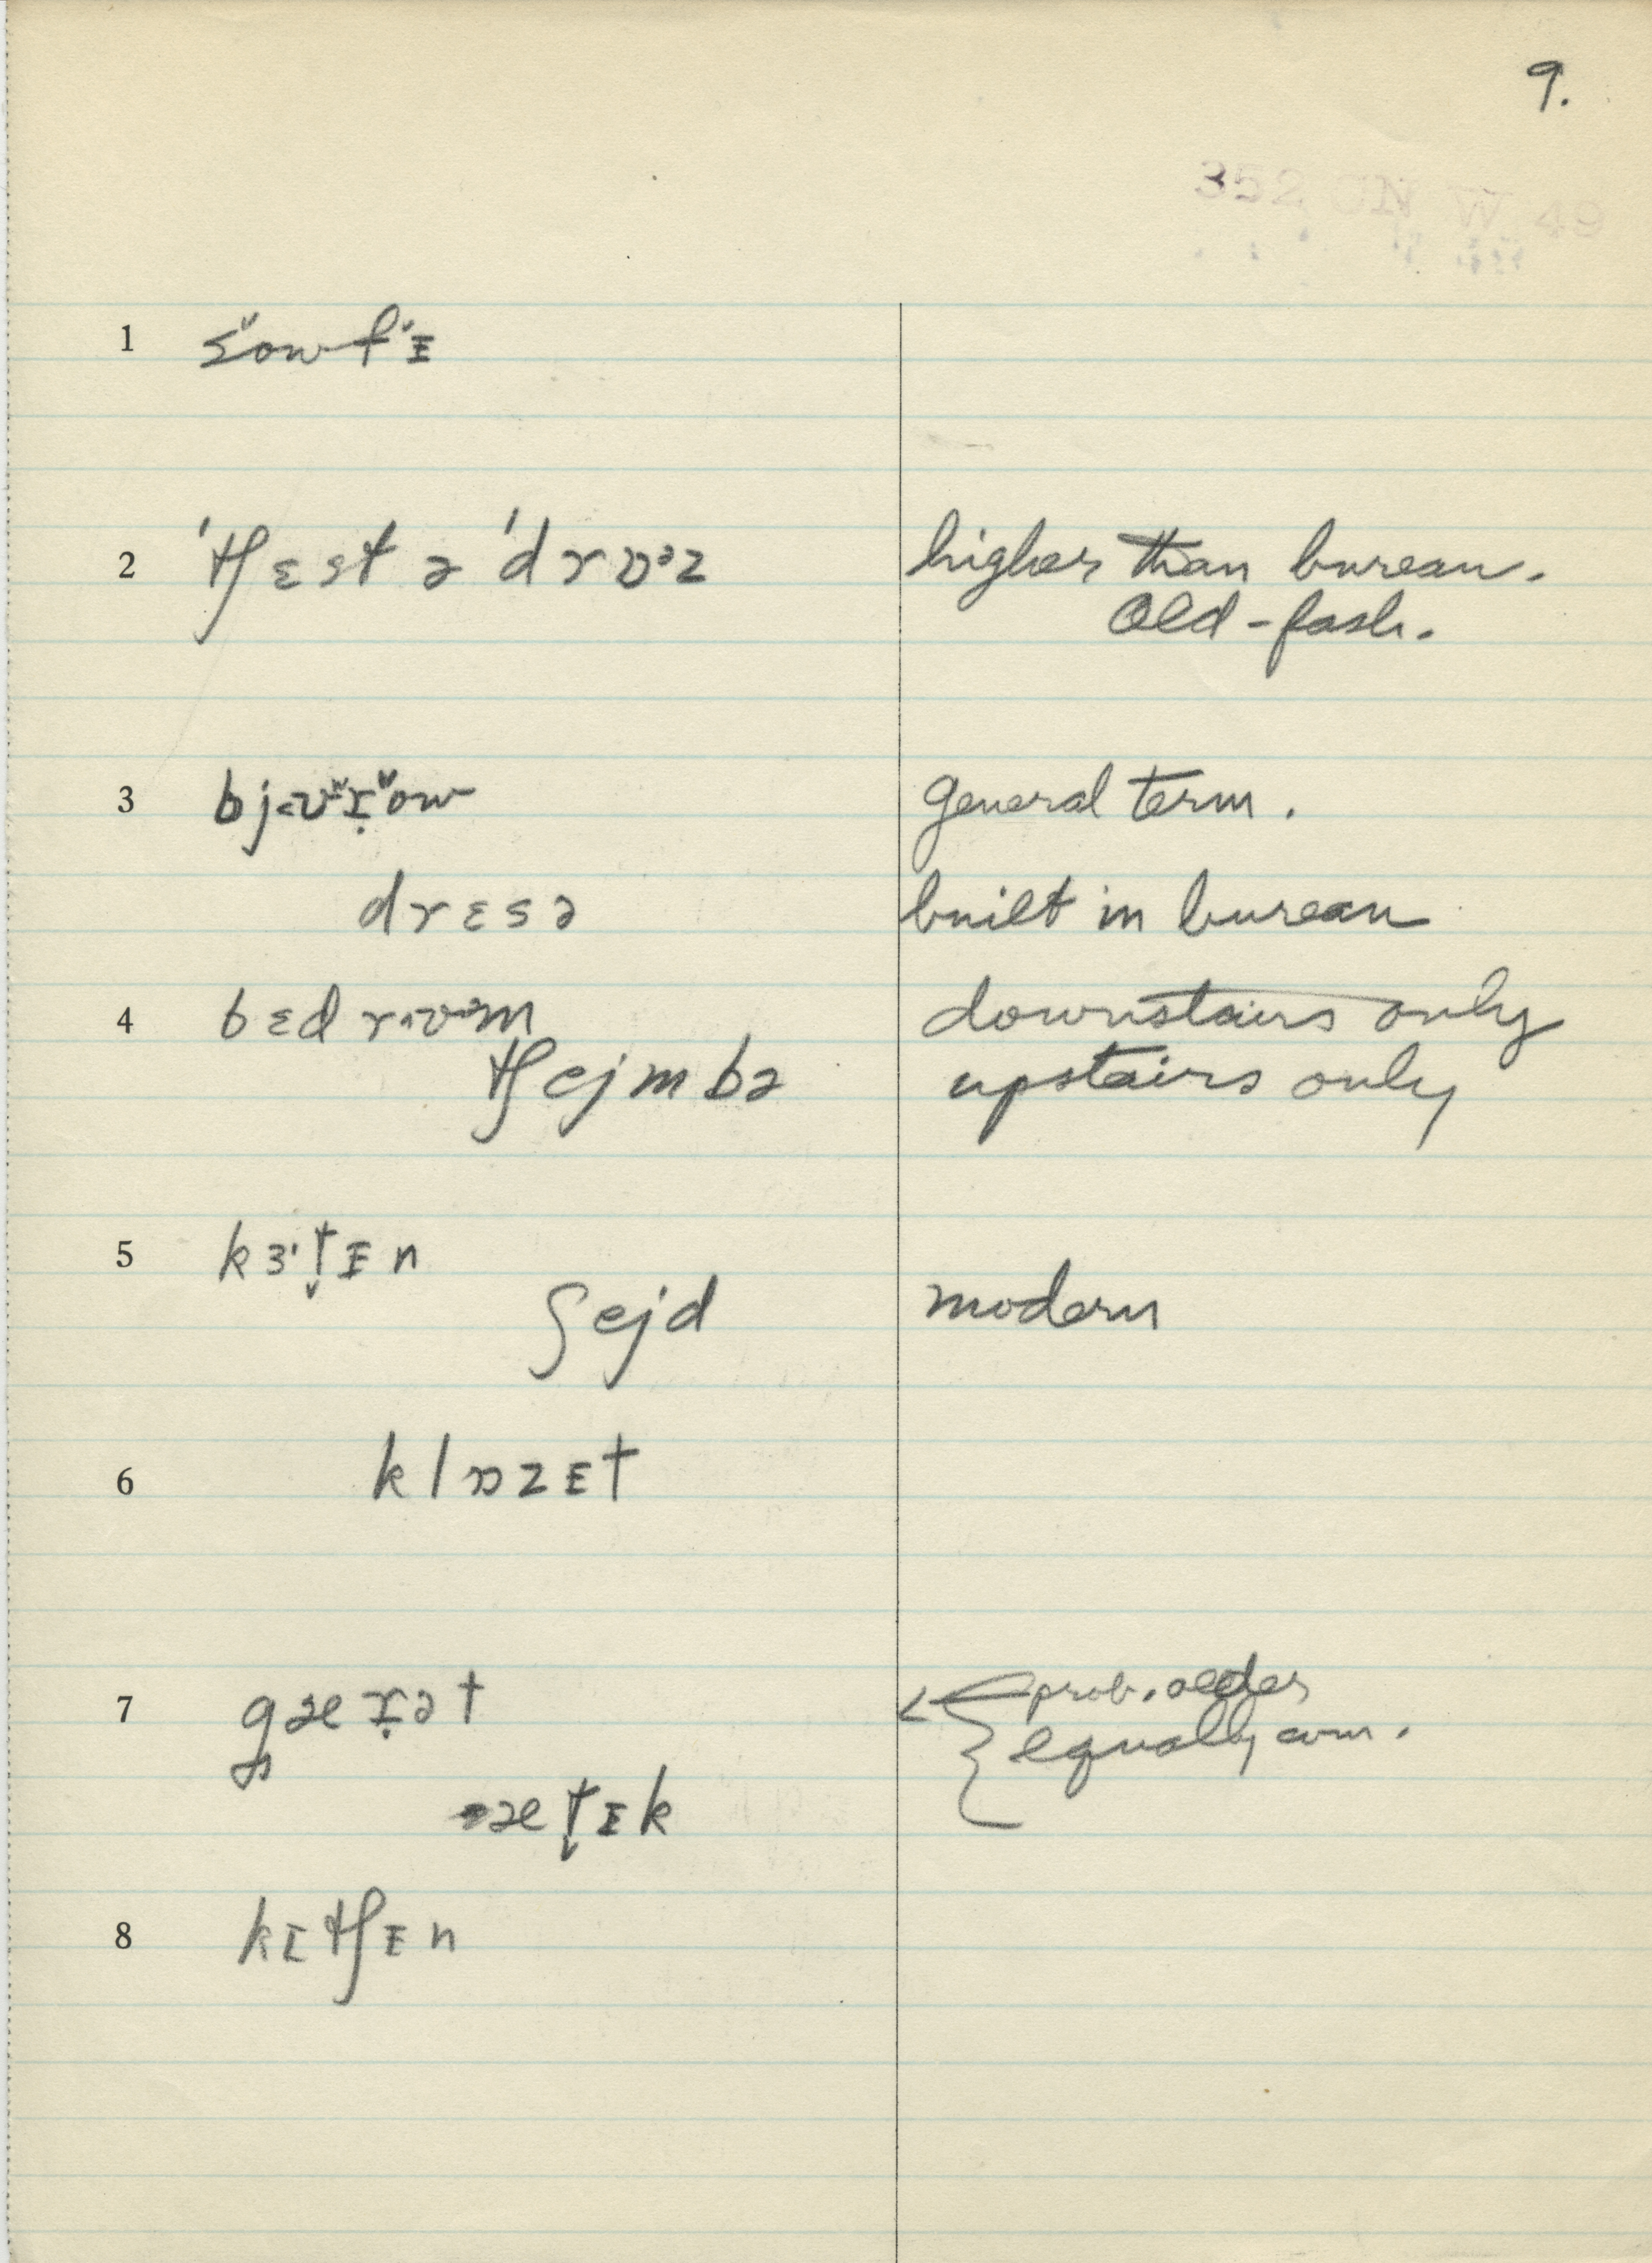 9.
1 sowfᵻ
2 ˈtʃɛst ə ˈdrɒᵊz higher than bureau.
Old-fash.
3 bjʊɾow general term.
dresə built in bureau
4 bɛdrʊm downstairs only
tʃejmbə upstairs only
5 kɜt̬ᵻn
ʃejd modern
6 klɒzᵻt
7 gæɾət prob. older
equally com.
æt̬ᵻk
8 kɪtʃᵻn